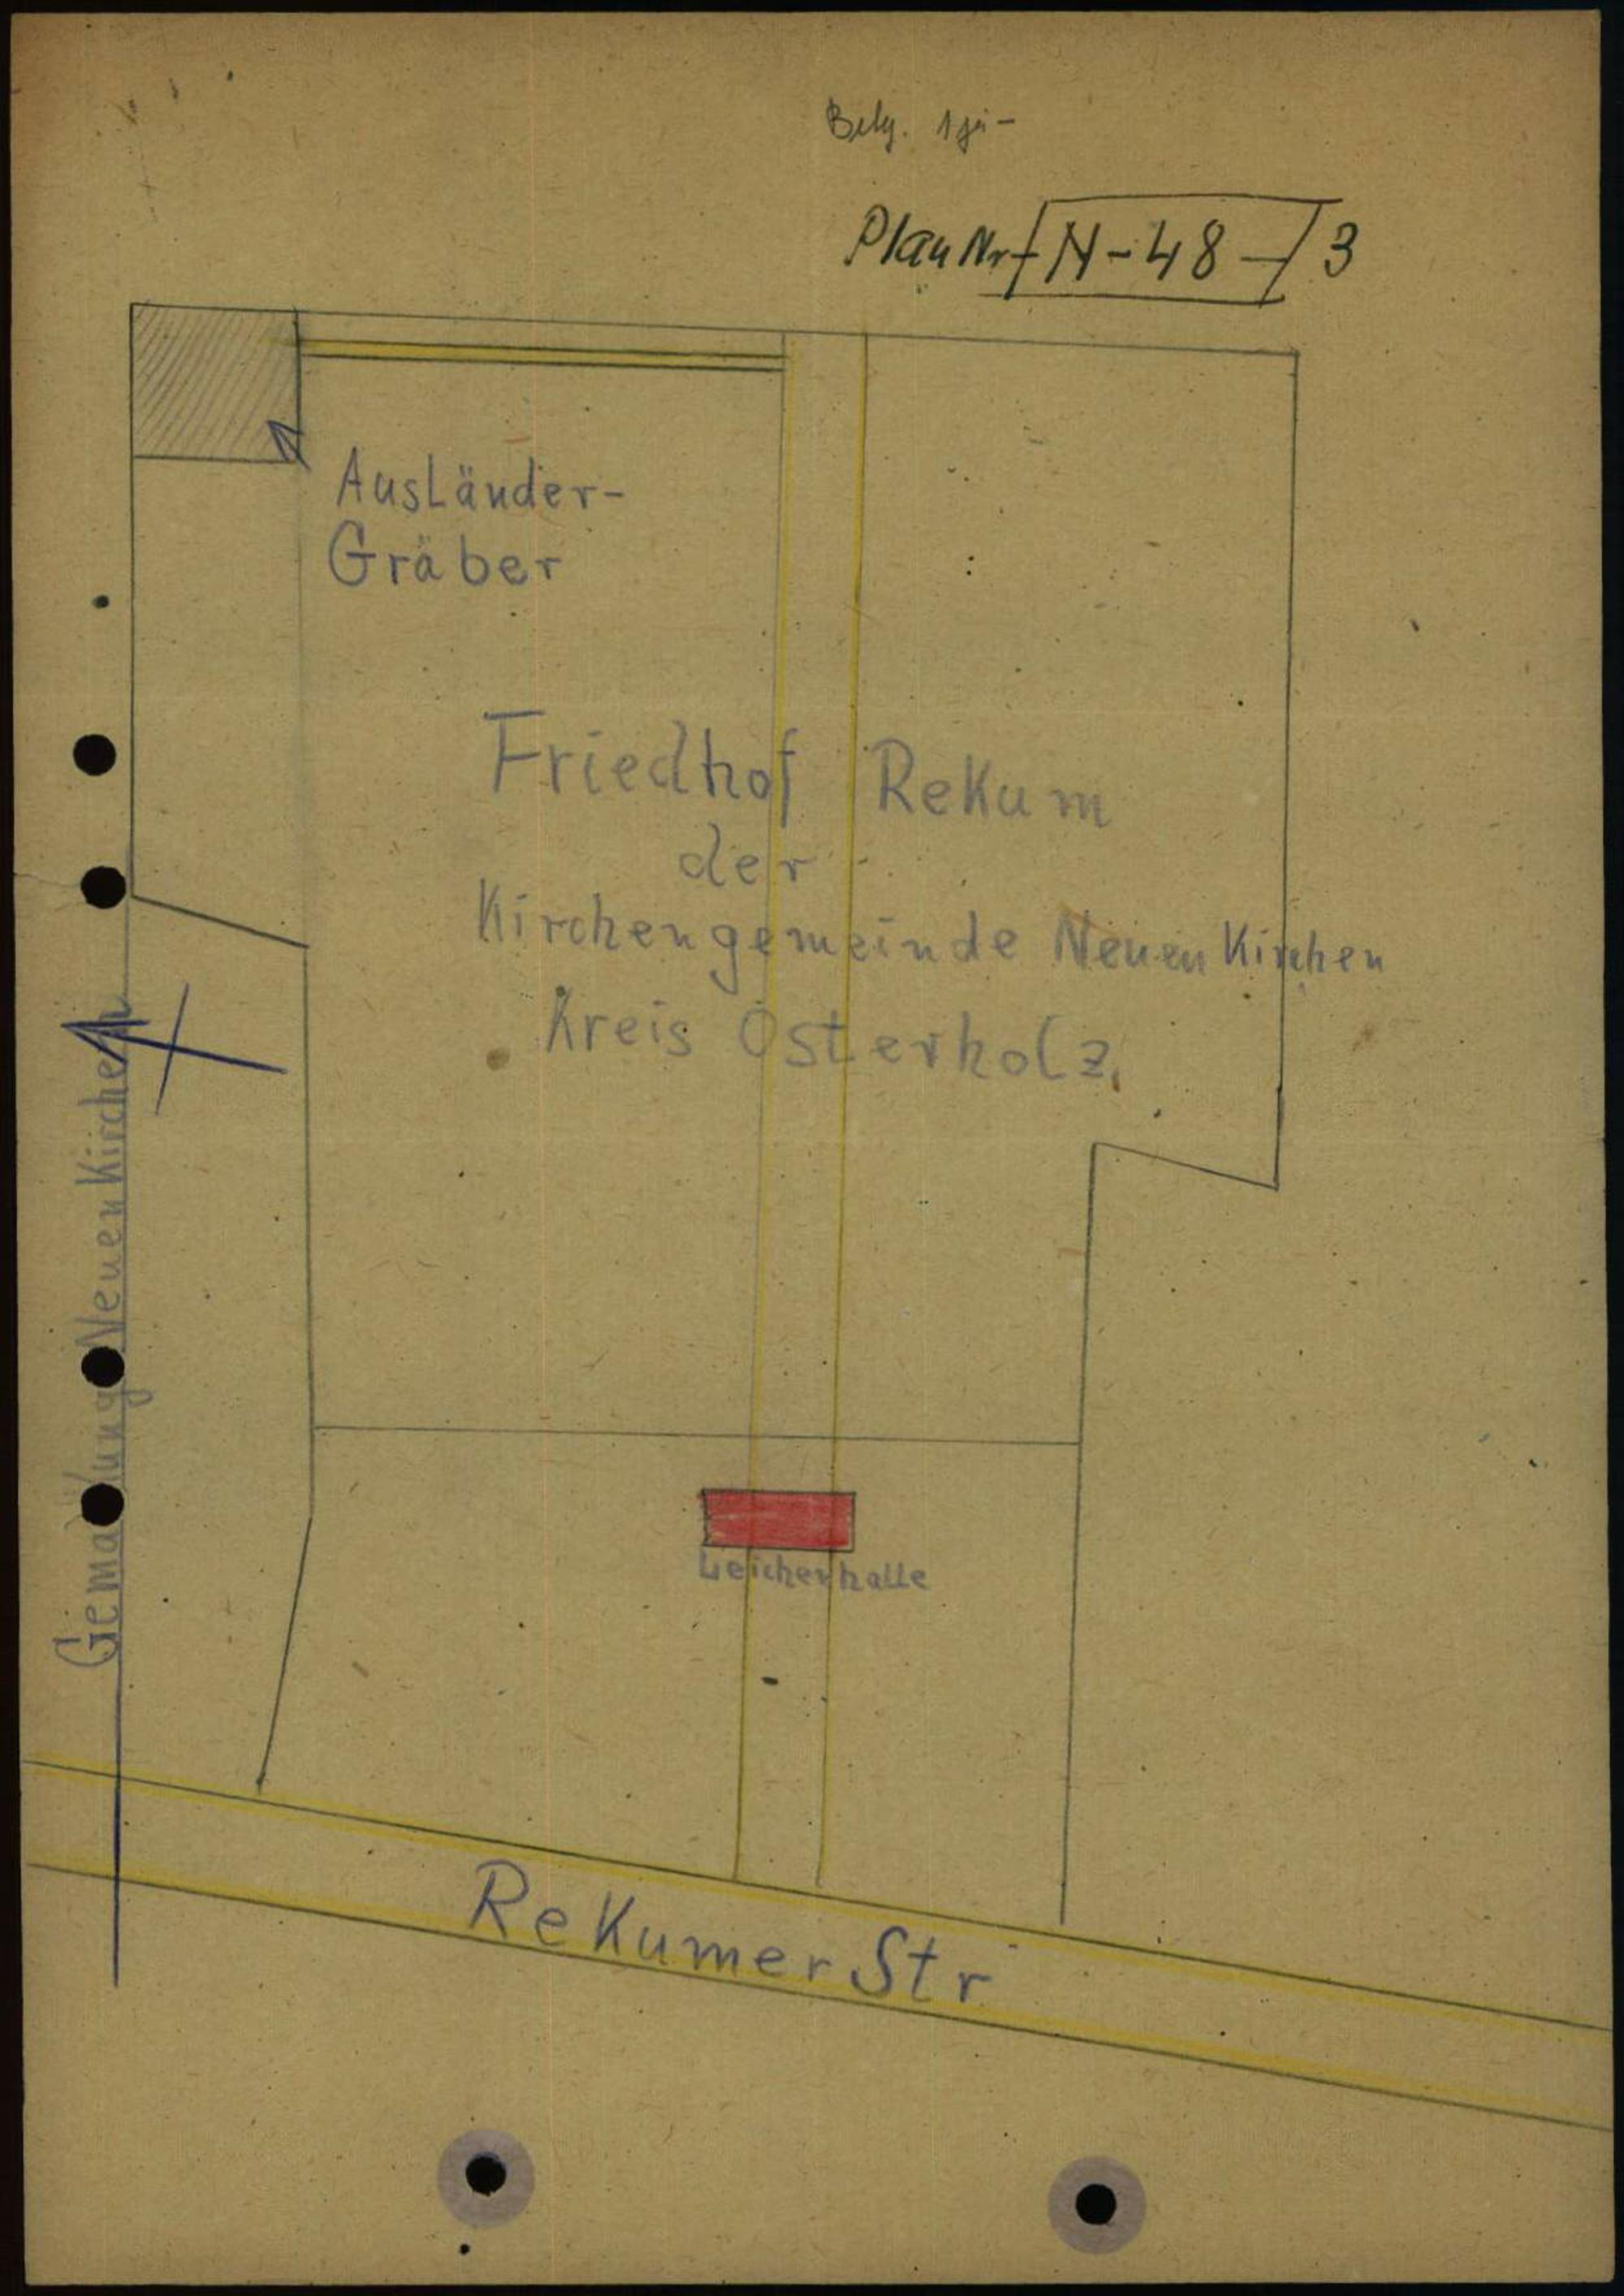 Plan Nr N-48-/3
Ausländer-
Gräber
Friedhof Rekum
der
Kirchengemeinde Neuen Kirchen
Kreis Osterholz.
Gemarkung Neuen Kirchen
Leichenhalle
Rekumer Str